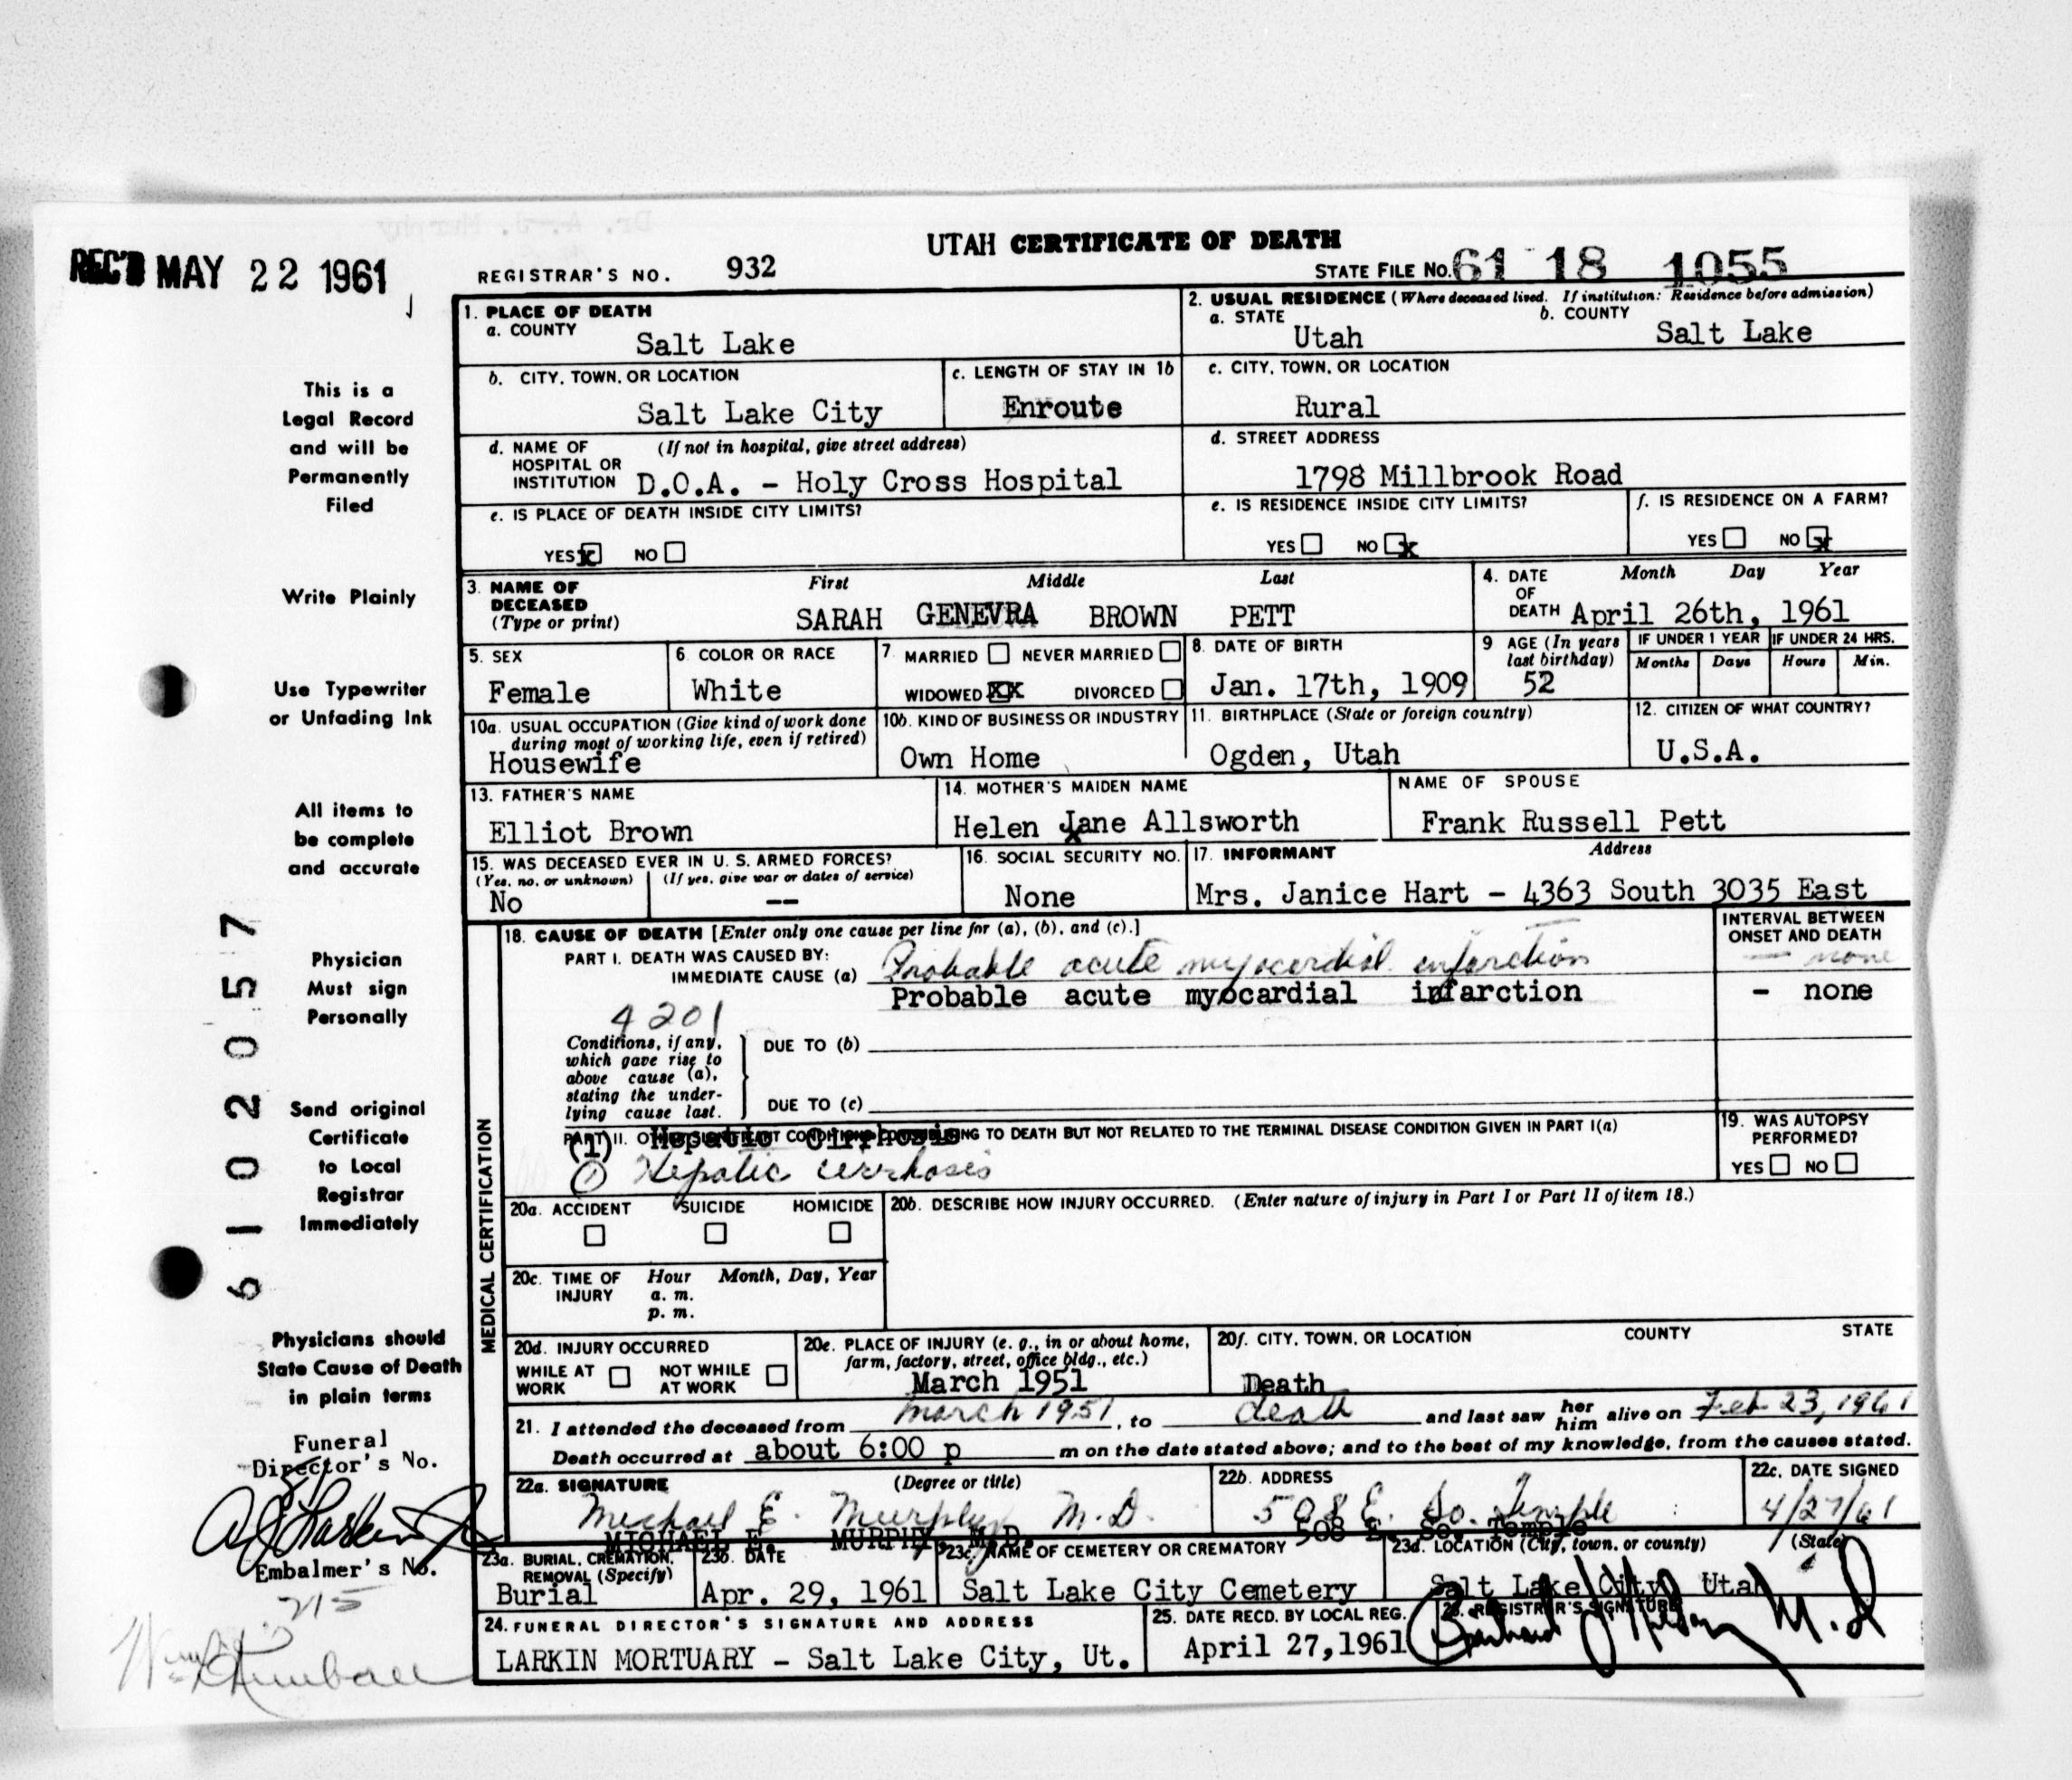 UTAH CERTIFICATE OF DEATH
REC'D MAY 22 1961
REGISTRAR'S NO. 932
STATE FILE NO. 61 18 1055
1. PLACE OF DEATH
a. COUNTY
Salt Lake
2. USUAL RESIDENCE (Where deceased lived. If institution: Residence before admission)
a. STATE
Utah
b. COUNTY
Salt Lake
b. CITY, TOWN, OR LOCATION
Salt Lake City
c. LENGTH OF STAY IN 1b
Enroute
c. CITY, TOWN, OR LOCATION
Rural
d. NAME OF HOSPITAL OR INSTITUTION (If not in hospital, give street address)
D.O.A. - Holy Cross Hospital
d. STREET ADDRESS
1798 Millbrook Road
e. IS PLACE OF DEATH INSIDE CITY LIMITS?
YES x NO
e. IS RESIDENCE INSIDE CITY LIMITS?
YES NO x
f. IS RESIDENCE ON A FARM?
YES NO x
3. NAME OF DECEASED (Type or print)
First Middle Last
SARAH GENEVRA BROWN PETT
4. DATE OF DEATH
Month Day Year
April 26th, 1961
5. SEX
Female
6. COLOR OR RACE
White
7. MARRIED NEVER MARRIED
WIDOWED XX DIVORCED
8. DATE OF BIRTH
Jan. 17th, 1909
9 AGE (In years last birthday)
52
IF UNDER 1 YEAR
Months Days
IF UNDER 24 HRS.
Hours Min.
10a. USUAL OCCUPATION (Give kind of work done during most of working life, even if retired)
Housewife
10b. KIND OF BUSINESS OR INDUSTRY
Own Home
11. BIRTHPLACE (State or foreign country)
Ogden, Utah
12. CITIZEN OF WHAT COUNTRY?
U.S.A.
13. FATHER'S NAME
Elliot Brown
14. MOTHER'S MAIDEN NAME
Helen Jane Allsworth
NAME OF SPOUSE
Frank Russell Pett
15. WAS DECEASED EVER IN U. S. ARMED FORCES?
(Yes, no, or unknown) (If yes, give war or dates of service)
No --
16. SOCIAL SECURITY NO.
None
17. INFORMANT Address
Mrs. Janice Hart - 4363 South 3035 East
MEDICAL CERTIFICATION
18. CAUSE OF DEATH [Enter only one cause per line for (a), (b), and (c).]
INTERVAL BETWEEN ONSET AND DEATH
PART I. DEATH WAS CAUSED BY:
IMMEDIATE CAUSE (a) Probable acute myocardial infarction
- none
Probable acute myocardial infarction
- none
4201
Conditions, if any, which gave rise to above cause (a), stating the underlying cause last.
DUE TO (b)
DUE TO (c)
PART II. OTHER SIGNIFICANT CONDITIONS CONTRIBUTING TO DEATH BUT NOT RELATED TO THE TERMINAL DISEASE CONDITION GIVEN IN PART I(a)
(1) Hepatic Cirrhosis
① Hepatic cirrhosis
19. WAS AUTOPSY PERFORMED?
YES NO
20a. ACCIDENT SUICIDE HOMICIDE
20b. DESCRIBE HOW INJURY OCCURRED. (Enter nature of injury in Part I or Part II of item 18.)
20c. TIME OF INJURY
Hour Month, Day, Year
a. m.
p. m.
20d. INJURY OCCURRED
WHILE AT WORK NOT WHILE AT WORK
20e. PLACE OF INJURY (e. g., in or about home, farm, factory, street, office bldg., etc.)
20f. CITY, TOWN, OR LOCATION COUNTY STATE
March 1951 Death
21. I attended the deceased from March 1951, to death and last saw her him alive on Feb 23, 1961
Death occurred at about 6:00 p m on the date stated above; and to the best of my knowledge, from the causes stated.
22a. SIGNATURE (Degree or title)
Michael E. Murphy M.D.
MICHAEL E. MURPHY, M.D.
22b. ADDRESS
508 E. So. Temple
508 E. So. Temple
22c. DATE SIGNED
4/27/61
23a. BURIAL, CREMATION, REMOVAL (Specify)
Burial
23b. DATE
Apr. 29, 1961
23c. NAME OF CEMETERY OR CREMATORY
Salt Lake City Cemetery
23d. LOCATION (City, town, or county) (State)
Salt Lake City, Utah
24. FUNERAL DIRECTOR'S SIGNATURE AND ADDRESS
LARKIN MORTUARY - Salt Lake City, Ut.
25. DATE RECD. BY LOCAL REG.
April 27, 1961
26. REGISTRAR'S SIGNATURE
M.D
This is a
Legal Record
and will be
Permanently
Filed
Write Plainly
Use Typewriter
or Unfading Ink
All items to
be complete
and accurate
Physician
Must sign
Personally
Send original
Certificate
to Local
Registrar
Immediately
Physicians should
State Cause of Death
in plain terms
Funeral
Director's No.
Embalmer's No.
215
61 02057